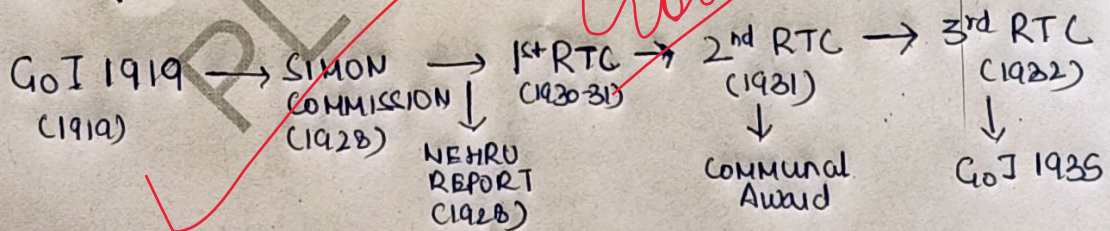 GoI 1919 → SIMON COMMISSION (1928) → 1st RTC (1930-31) → 2nd RTC (1931) → 3rd RTC (1932)
(1919)
↓ NEHRU REPORT (1928)
↓ Communal Award
↓ GoI 1935
PL